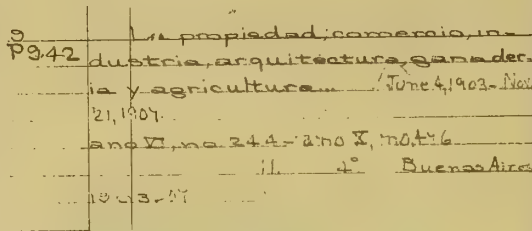 9
P942 La propiedad; comercio, in-
dustria, arquitectura, ganader-
ia y agricultura... June 4, 1903-Nov
21, 1907.
ano VI, no. 244-ano X, no. 476
il. 4° Buenos Aires
1903-07